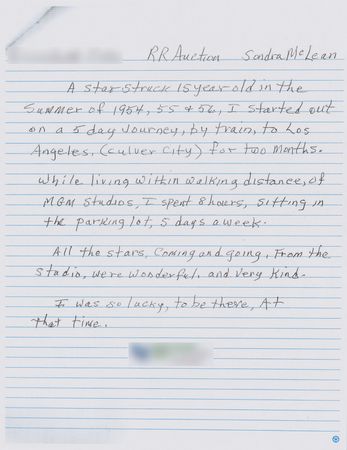 RR Auction Sondra McLean
A star struck 15 year old in the
Summer of 1954, 55 & 56, I started out
on a 5 day Journey, by train, to Los
Angeles, (Culver City) for two months.
While living within walking distance, of
MGM Studios, I spent 8 hours, sitting in
the parking lot, 5 days a week.
All the stars, Coming and going, From the
Studio, were wonderful, and very Kind.
I was so lucky, to be there, At
that time.